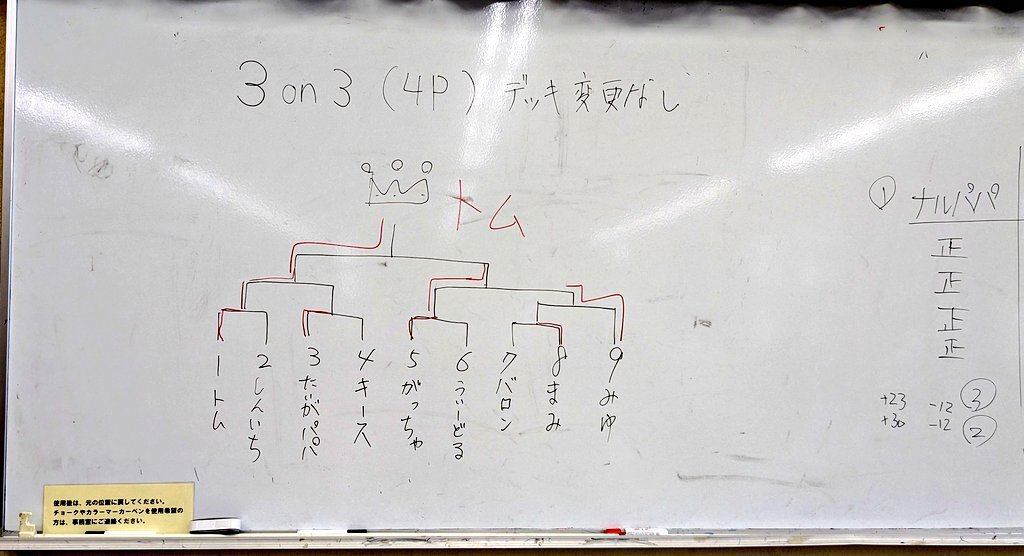 3 on 3 (4P) デッキ変更なし
トム
1 トム
2 しんいち
3 たいがパパ
4 キース
5 がっちゃ
6 うぃーどる
7 バロン
8 まみ
9 みゆ
① ナルパパ
正
正
正
正
+23 -12 ③
+30 -12 ②
使用後は、元の位置に戻してください。
チョークやカラーマーカーペンを使用希望の
方は、事務室にご連絡ください。